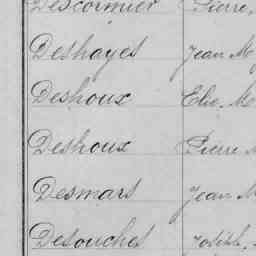 Descormier Pierre,
Deshayes Jean M
Deshoux Elie M
Deshoux Pierre M
Desmars Jean M
Desouches Joseph